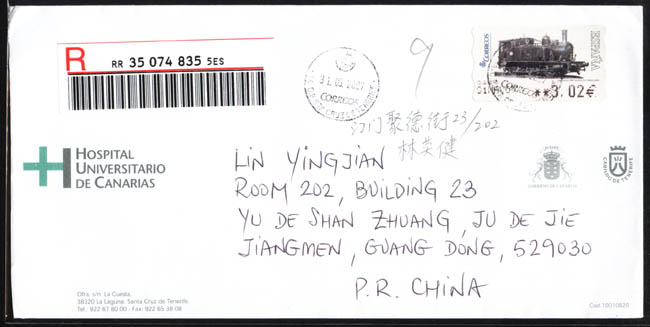 R
RR 35 074 835 5ES
31.05.2007
CORREOS
9
CORREOS
ESPAÑA
**3,02€
江门聚德街23/202
林英健
HOSPITAL
UNIVERSITARIO
DE CANARIAS
LIN YINGJIAN
ROOM 202, BUILDING 23
YU DE SHAN ZHUANG, JU DE JIE
JIANGMEN, GUANG DONG, 529030
P.R. CHINA
GOBIERNO DE CANARIAS
CABILDO DE TENERIFE
Ofra, s/n. La Cuesta.
38320 La Laguna. Santa Cruz de Tenerife.
Tel.: 922 67 80 00 - Fax: 922 65 38 08
Cod. 10010820